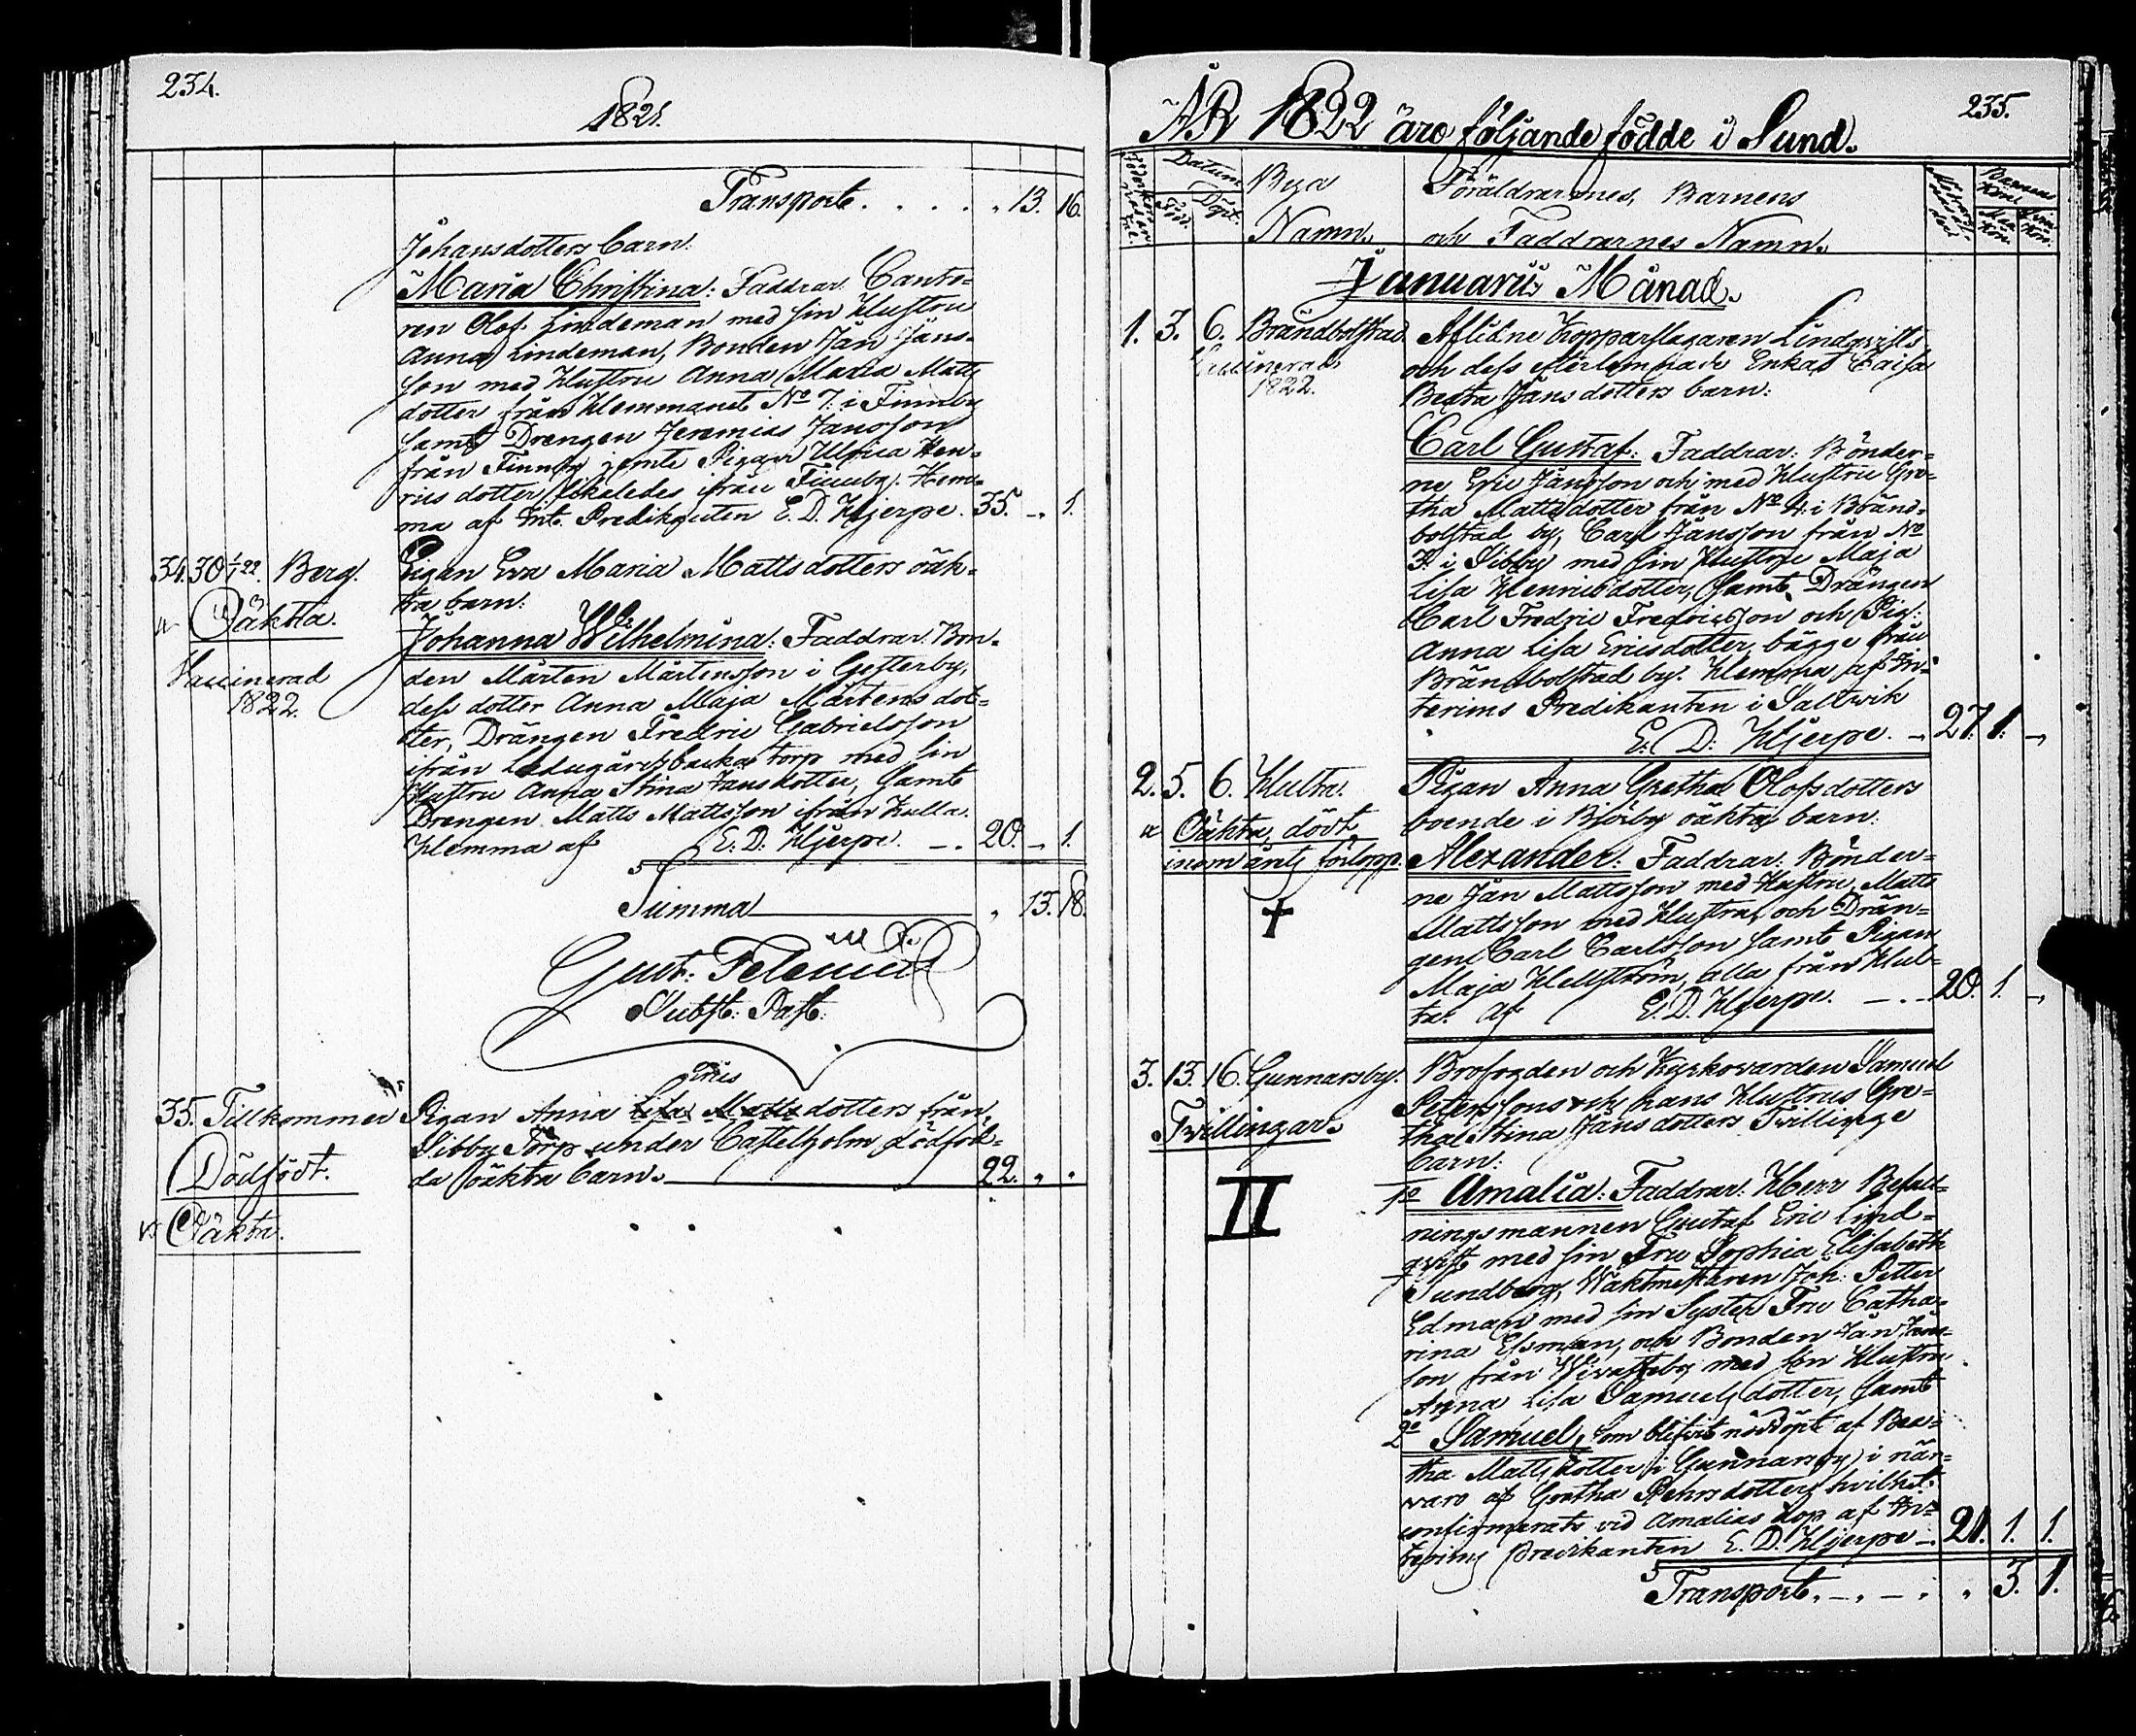 234.
1821.
Transport . . . . . 13. 16.
Johansdotters barn:
Maria Christina: Faddrar: Canto=
ren Olof Lindeman med sin Hustru
Anna Lindeman, Bonden Jan Jans=
son med Hustru Anna Maria Matts
dotter från Hemmanet No 7. i Finnby
samt Drengen Jeremias Jansson
från Finnby jemte Pigan Ulrica Hen=
ricsdotter likaledes ifrån Finnby. Hem=
ma af Int. Predikanten E. D. Hjerpe. 35. – 1.
34. 30 1/1 22. Berg. Pigan Eva Maria Mattsdotters oäk=
Oäkta. ta barn:
Johanna Wilhelmina: Faddrar: Bon=
Vaccinerad den Mårten Mårtensson i Gesterby,
1822. dess dotter Anna Maja Mårtens dot=
ter, Drängen Fredric Gabrielsson
ifrån Ladugårdsbacka torp med sin
Hustru Anna Stina Jansdotter, samt
Drengen Matts Mattsson ifrån Kulla.
Hemma af E. D. Hjerpe. – . 20. – 1.
Summa 13. 18.
Gust:
Subst: Past:
35. Tillkommer Pigan Anna Lisa Mattsdotters från
Sibby Torp under Castelholm dödföd=
Dödfödt. da oäkta barn. 22. . .
Oäkta.
235.
ÅR 1822 äro följande födde i Sund.
Datum Bya Föräldrarnes, Barnens Barnens
Föd. Döpt. Namn. och Faddrarnes Namn.
Januarii Månad.
1. 3. 6. Brändbolstad. Aflidne Kopparslagaren Lindqvists
Vaccinerad och dess efterlemnade Enkas Caisa
1822. Beata Jansdotters barn:
Carl Gustaf: Faddrar: Bönder=
ne Eric Jansson och med Hustru Gre=
tha Mattsdotter från No 4. i Bränd=
bolstad by, Carl Jansson från No
3. i Sibby med sin Hustru Maja
Lisa Henricsdotter, samt Drängen
Carl Fredric Fredricsson och Pig:
Anna Lisa Ericsdotter, bägge från
Brändbolstad by. Hemma af In=
terims Predikanten i Saltwik
E. D: Hjerpe. – 27. 1. –
2. 5. 6. Hulta. Pigan Anna Gretha Olofsdotters
Oäkta, dödt boende i Björby oäkta barn:
inom årets förlopp. Alexander: Faddrar: Bönder=
ne Jan Mattsson med Hustru, Matts
Mattsson med Hustru, och Drän=
gen Carl Carlsson samt Pigan
Maja Hellström, alla från Hul=
ta. Af E. D. Hjerpe. – . 20. 1. –
3. 13. 16. Gunnarsby. Brofogden och Kyrkovärden Samuel
Peterssons och hans Hustrus Gre=
Tvillingar. tha Stina Jansdotters Tvillinge
barn:
II
1o Amalia: Faddrar: Herr Befall=
ningsmannen Gustaf Eric Lind=
qvist med sin Fru Sophia Elisabeth
Sundberg, Waktmästaren Joh: Petter
Edman med sin Syster Fru Catha=
rina Essman, och Bonden Jan Jans=
son från Wivastby med sin Hustru
Anna Lisa Samuelsdotter, samt
2o Samuel, som blifvit nöddöpt af Bea=
tha Mattsdotter i Gunnarsby, i när=
varo af Gretha Pehrsdotter, hvilket
confirmerats vid Amalias dop af In=
terims Predikanten E. D. Hjerpe – 21. 1. 1.
Transport. – . – . . 3. 1.